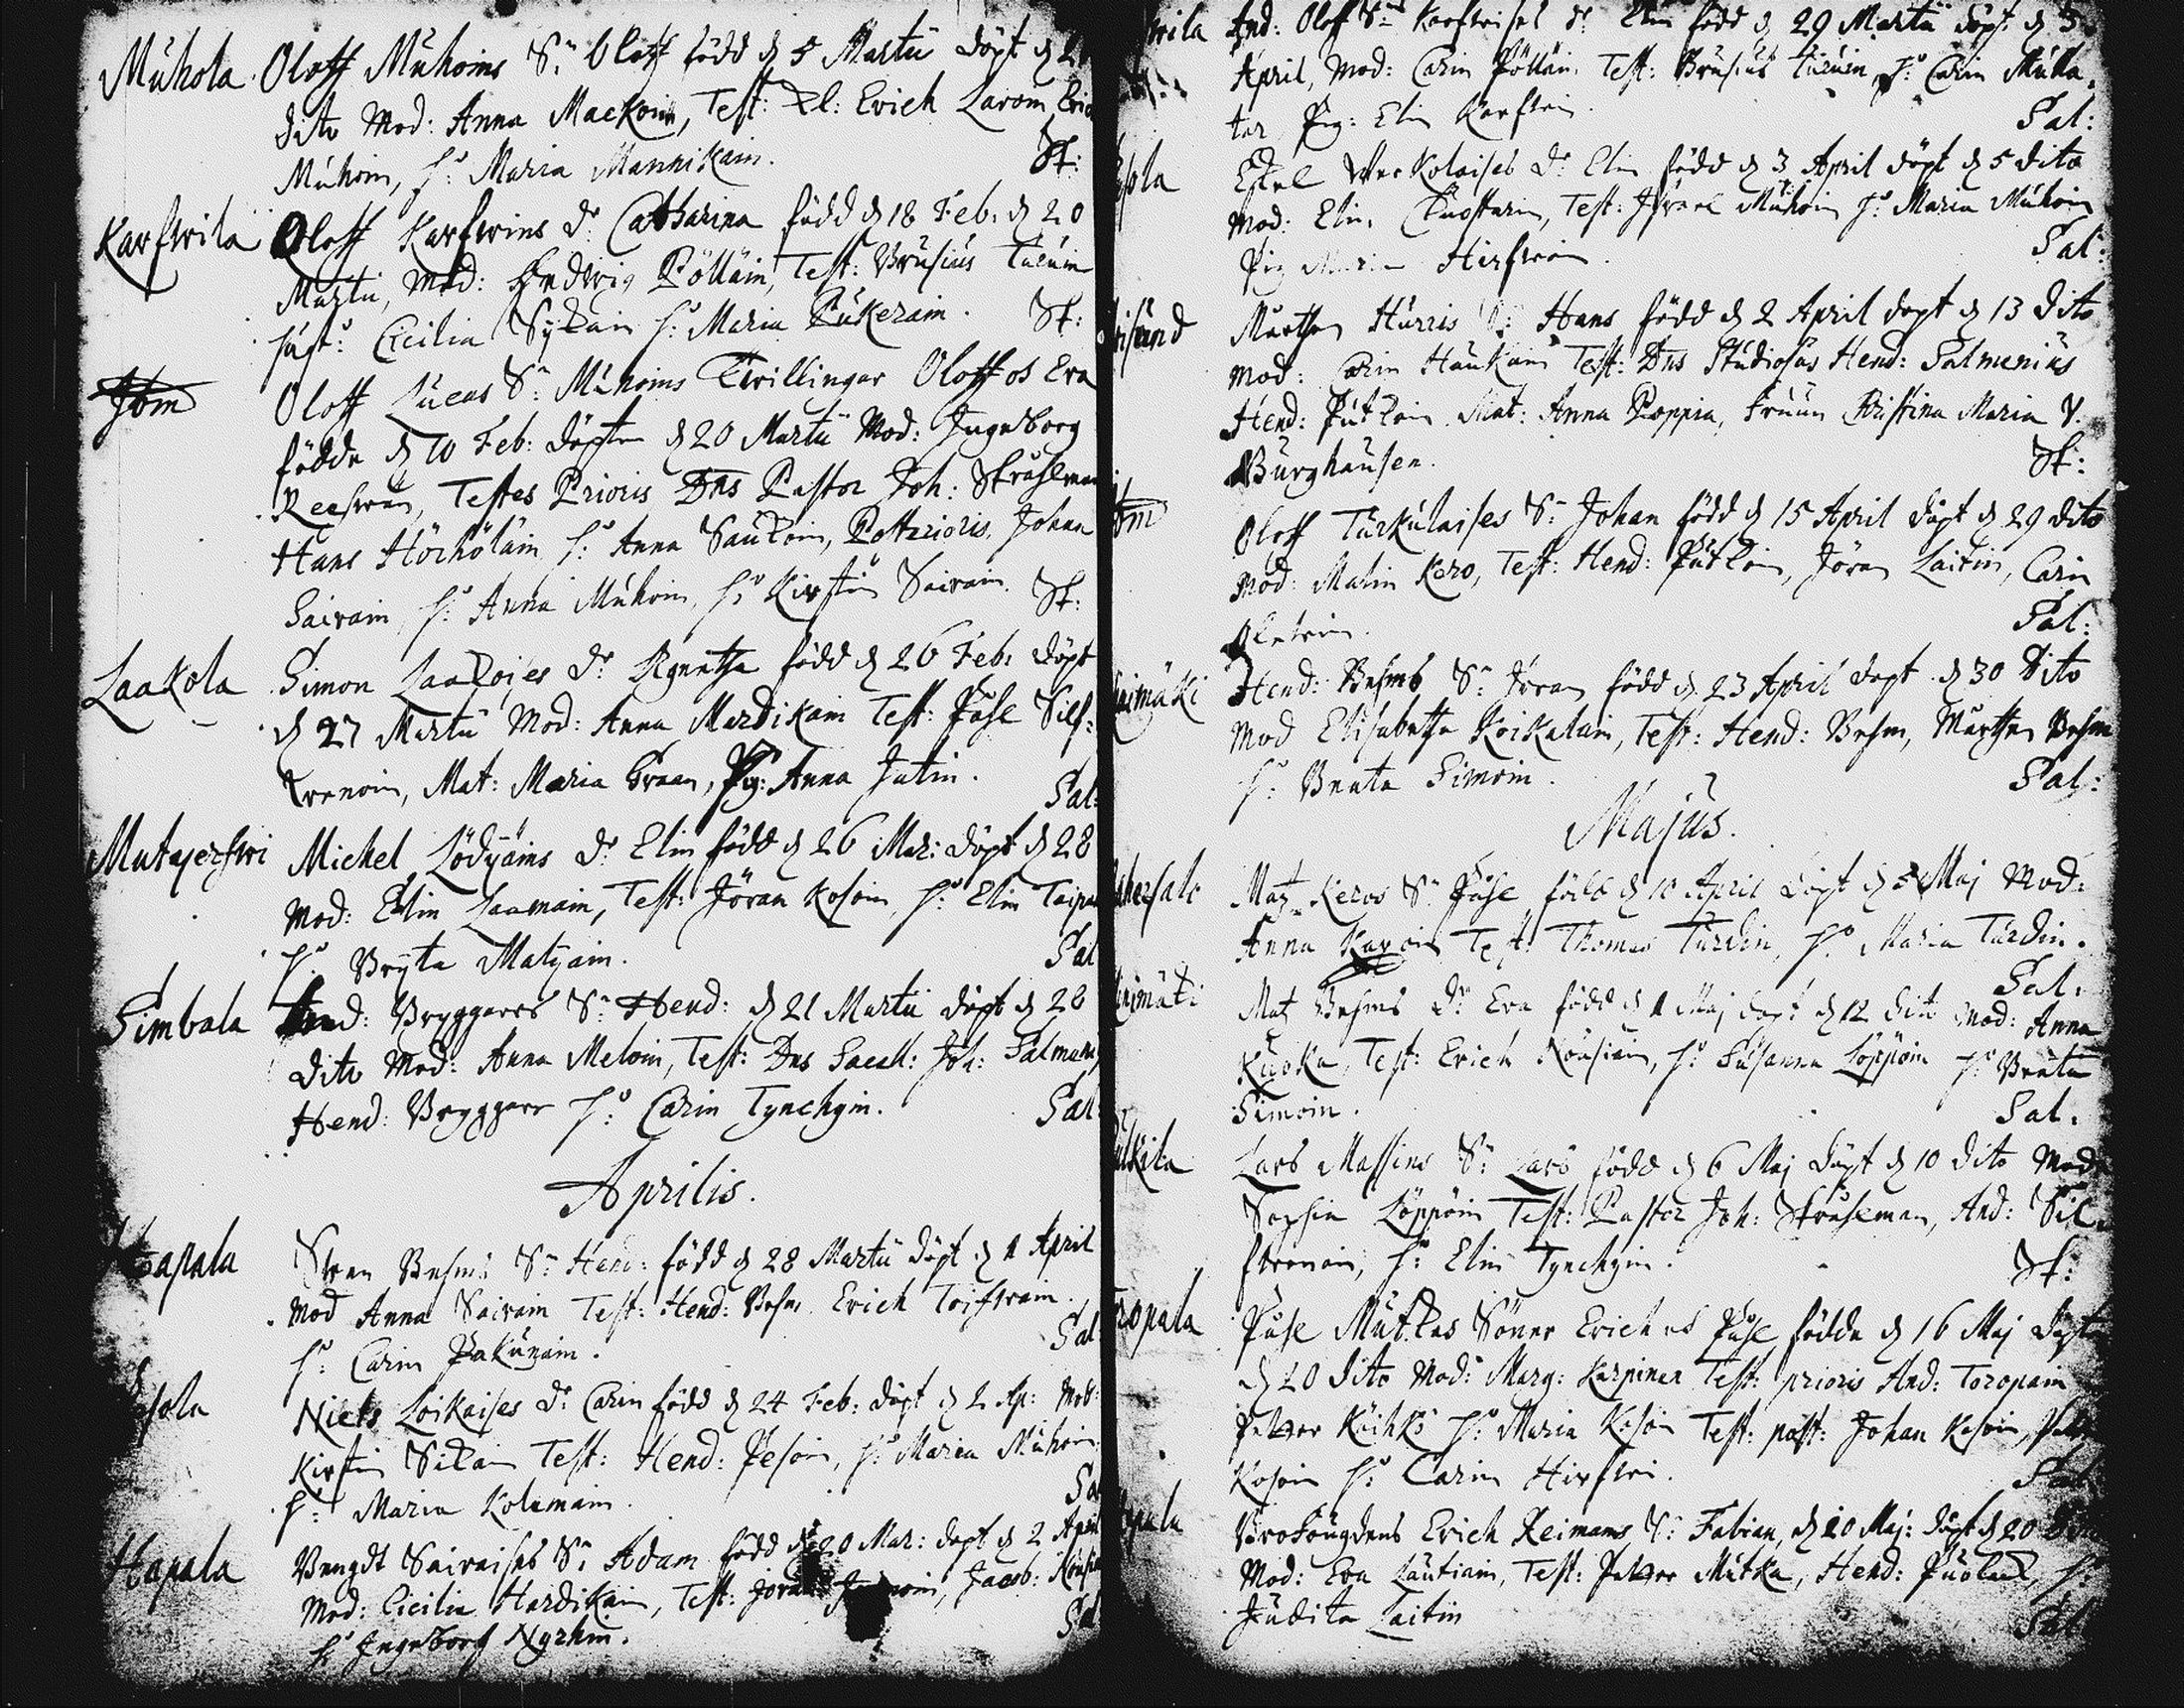 Muhola Oloff Muhoins S: Oloff född d 5 Martii döpt d 2
dito Mod: Anna Mackoin, Test: Erich Lavoin
Muhoin, h: Maria Mannikain. St:
Karfwila Oloff Karfwins D: Catharina född d 18 Feb: d 20
Martii, Mod: Hedwig Pölläin, Test: Brusius Turuin
Cicilia Sykäin h: Maria Pukerain. St:
Ibm Oloff Lucas S: Muhoins Twillingar Oloff os Eva
födde d 10 Feb: döpte d 20 Martii Mod: Ingeborg
Reeswan, Testes Prioris Dns Pastor Joh: Stråhlman
Hans Hörhöläin h: Anna Saukoin, Posterioris, Johan
Sairain, h: Anna Muhoin, h: Kirstin Sairain. St:
Laakola Simon Laakoises D: Agnetha född d 26 Feb: döpt
d 27 Martii Mod: Anna Mardikain Test: Påhl Silf-
wenoin, Mat: Maria Graan, Pig: Anna Jutin. Sal:
Mutajerfwi Michel Lödyäins D: Elin född d 26 Mar: döpt d 28
Mod: Elin Laamain, Test: Jöran Kosoin, h: Elin
h: Bryta Matyain. Sal
Simbala Hend: Bryggares S: Hend: d 21 Martii döpt d 28
dito Mod: Anna Meloin, Test: Dns Sacell: Joh: Salmeni
Hend: Bryggare h: Carin Tynchyin. Sal
Aprilis.
Hapala Swen Behms S: Hend: född d 28 Martii döpt d 1 April
Mod Anna Sairain Test: Hend: Behm, Erich Toifwain.
h: Carin Pakunain. Sal
Niels Loikaises D: Carin född d 24 Feb: döpt d 2 Ap: Mod:
Kirstin Sikain Test: Hend: Pesoin, h: Maria Muhoin
h: Maria Kolemain. Sa
Hapala Bengdt Sairaises S: Adam född d 20 Mar: döpt d 2 April
Mod: Cicilia Hardikain, Test: Jöran, Jacob:
h: Ingeborg Nyrhin. Sal
And: Oloff S: Karfwises D: Elin född d 29 Martii döpt d 3
April, Mod: Carin Pölläin. Test: Brusius Turuin, h: Carin
Pig: Elin Karfwin. Sal:
Eskel Werkolaises D: Elin född d 3 April döpt d 5 dito
Mod: Elin, Test: Israel Muhoin h: Maria Muhoin
Pig Maria Hirfwoin. Sal:
Marthen Hurris S: Hans född d 2 April döpt d 13 dito
Mod: Carin Haukain Test: Dns Studiosus Hend: Salmenius
Hend: Putkoin. Mat: Anna Poppia, Fruun Christina Maria V.
Burghausen. St:
Ibm Oloff Turkulaises S: Johan född d 15 April döpt d 29 dito
Mod: Malin Kero, Test: Hend: Putkoin, Jöran Laitin, Carin
Sal:
Hend: Behms S: Jöran född d. 23 April döpt d 30 dito
Mod Elisabetha Koikalain, Test: Hend: Behm, Marthen Behm
h: Beata Simoin. Sal:
Majus.
Matz Keros S: Påhl född d 10 April döpt d 5 Maj Mod:
Anna Karoin Test: Thomas Turdin, h: Maria Turdin.
Sal.
Matz Behms D: Eva född d 1 Maj döpt d 12 dito Mod: Anna
Kuoka, Test: Erich Nousiain, h: Susanna Löppöin h: Beata
Simoin. Sal.
Lars Massins S: Lars född d 6 Maj döpt d 10 dito Mod
Sophia Löppöin Test: Pastor Joh: Stråhlman, And: Sil
fwenoin, h: Elin Tynchyin. St:
Påhl Mutkas Söner Erich os Påhl födde d 16 Maj döpte
d 20 dito Mod: Marg: Karpinen Test: prioris And: Toropain
Petter Köihkö h: Maria Kosoin Test: post: Johan Kosoin,
Kosoin h: Carin Hirfwi. Sal
Brofougdens Erich Reimans S: Fabian, d 10 Maj: döpt d 20
Mod: Eva Lautiain, Test: Petter Mutka, Hend:, h:
Judita Laitin Sal